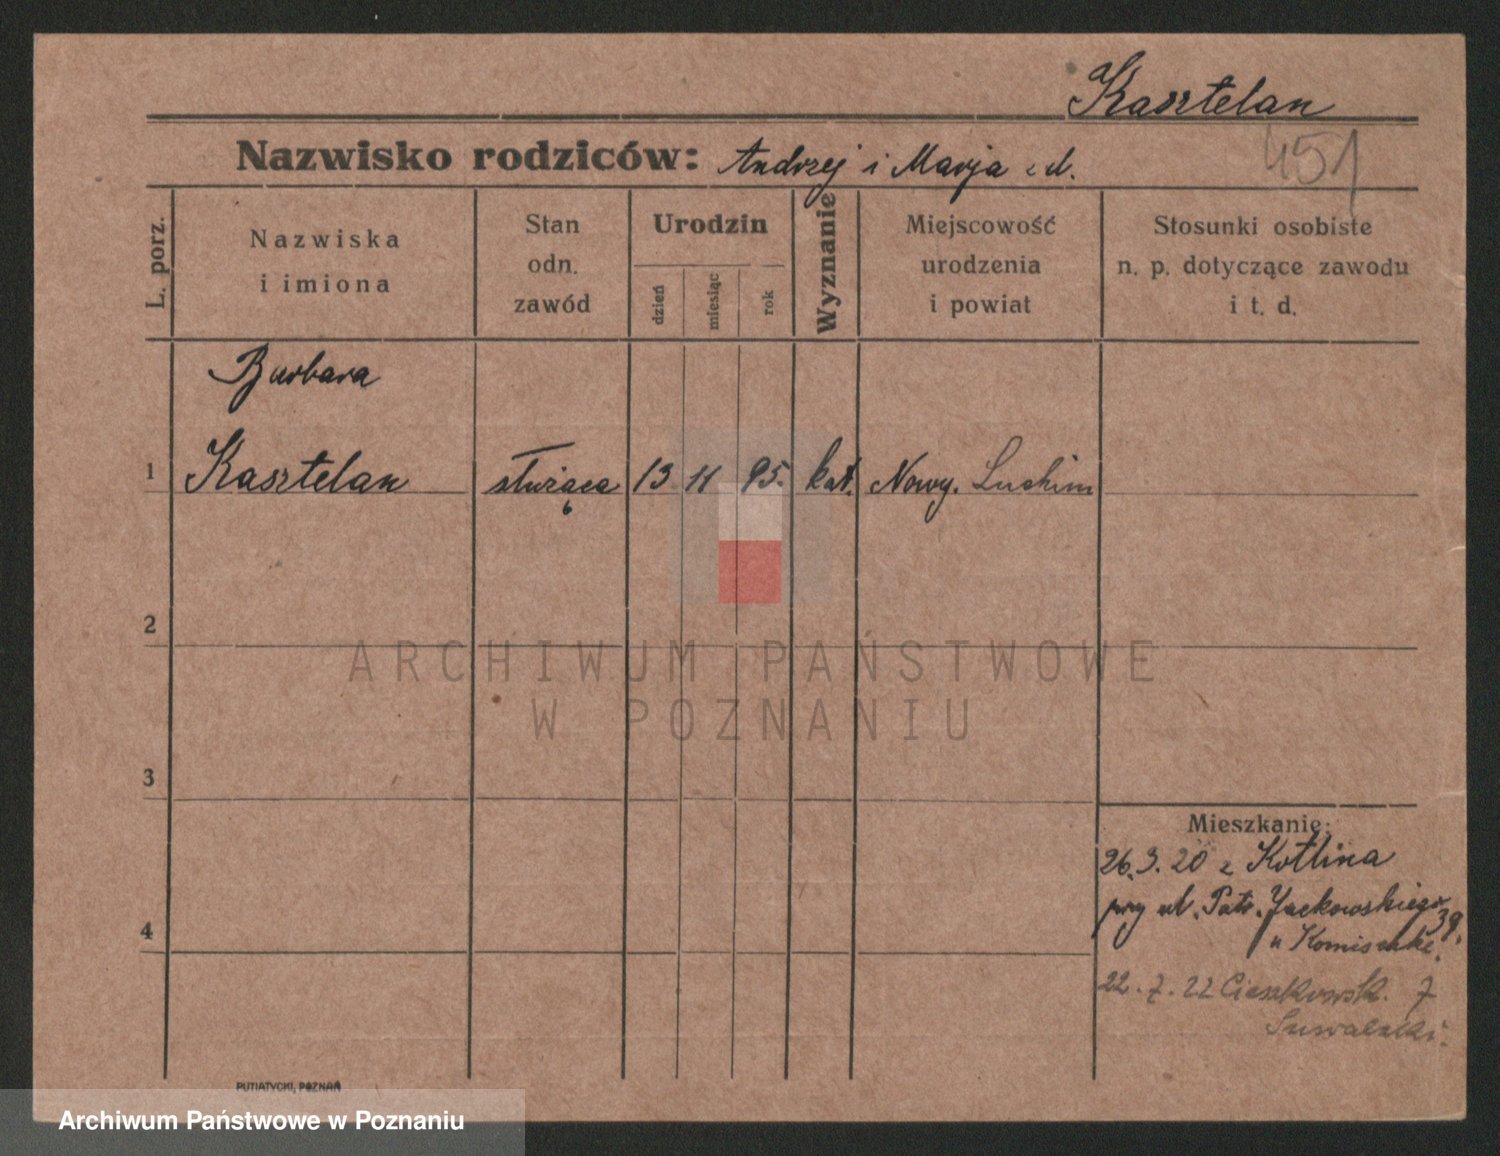 Kasztelan
451
Nazwisko rodziców: Andrzej i Marja z d.
L. porz.
Nazwiska
i imiona
Stan
odn.
zawód
Urodzin
dzień
miesiąc
rok
Wyznanie
Miejscowość
urodzenia
i powiat
Stosunki osobiste
n. p. dotyczące zawodu
i t. d.
Barbara
1 Kasztelan służąca 13 11 95. kat. Nowy.
2
ARCHIWUM PAŃSTWOWE
W POZNANIU
3
Mieszkanie:
26.3.20 z Kotlina
przy ul. Patr. Jackowskiego 39.
4
22.7.22 Cieszkowsk. 7
PUTIATYCKI, POZNAŃ
Archiwum Państwowe w Poznaniu